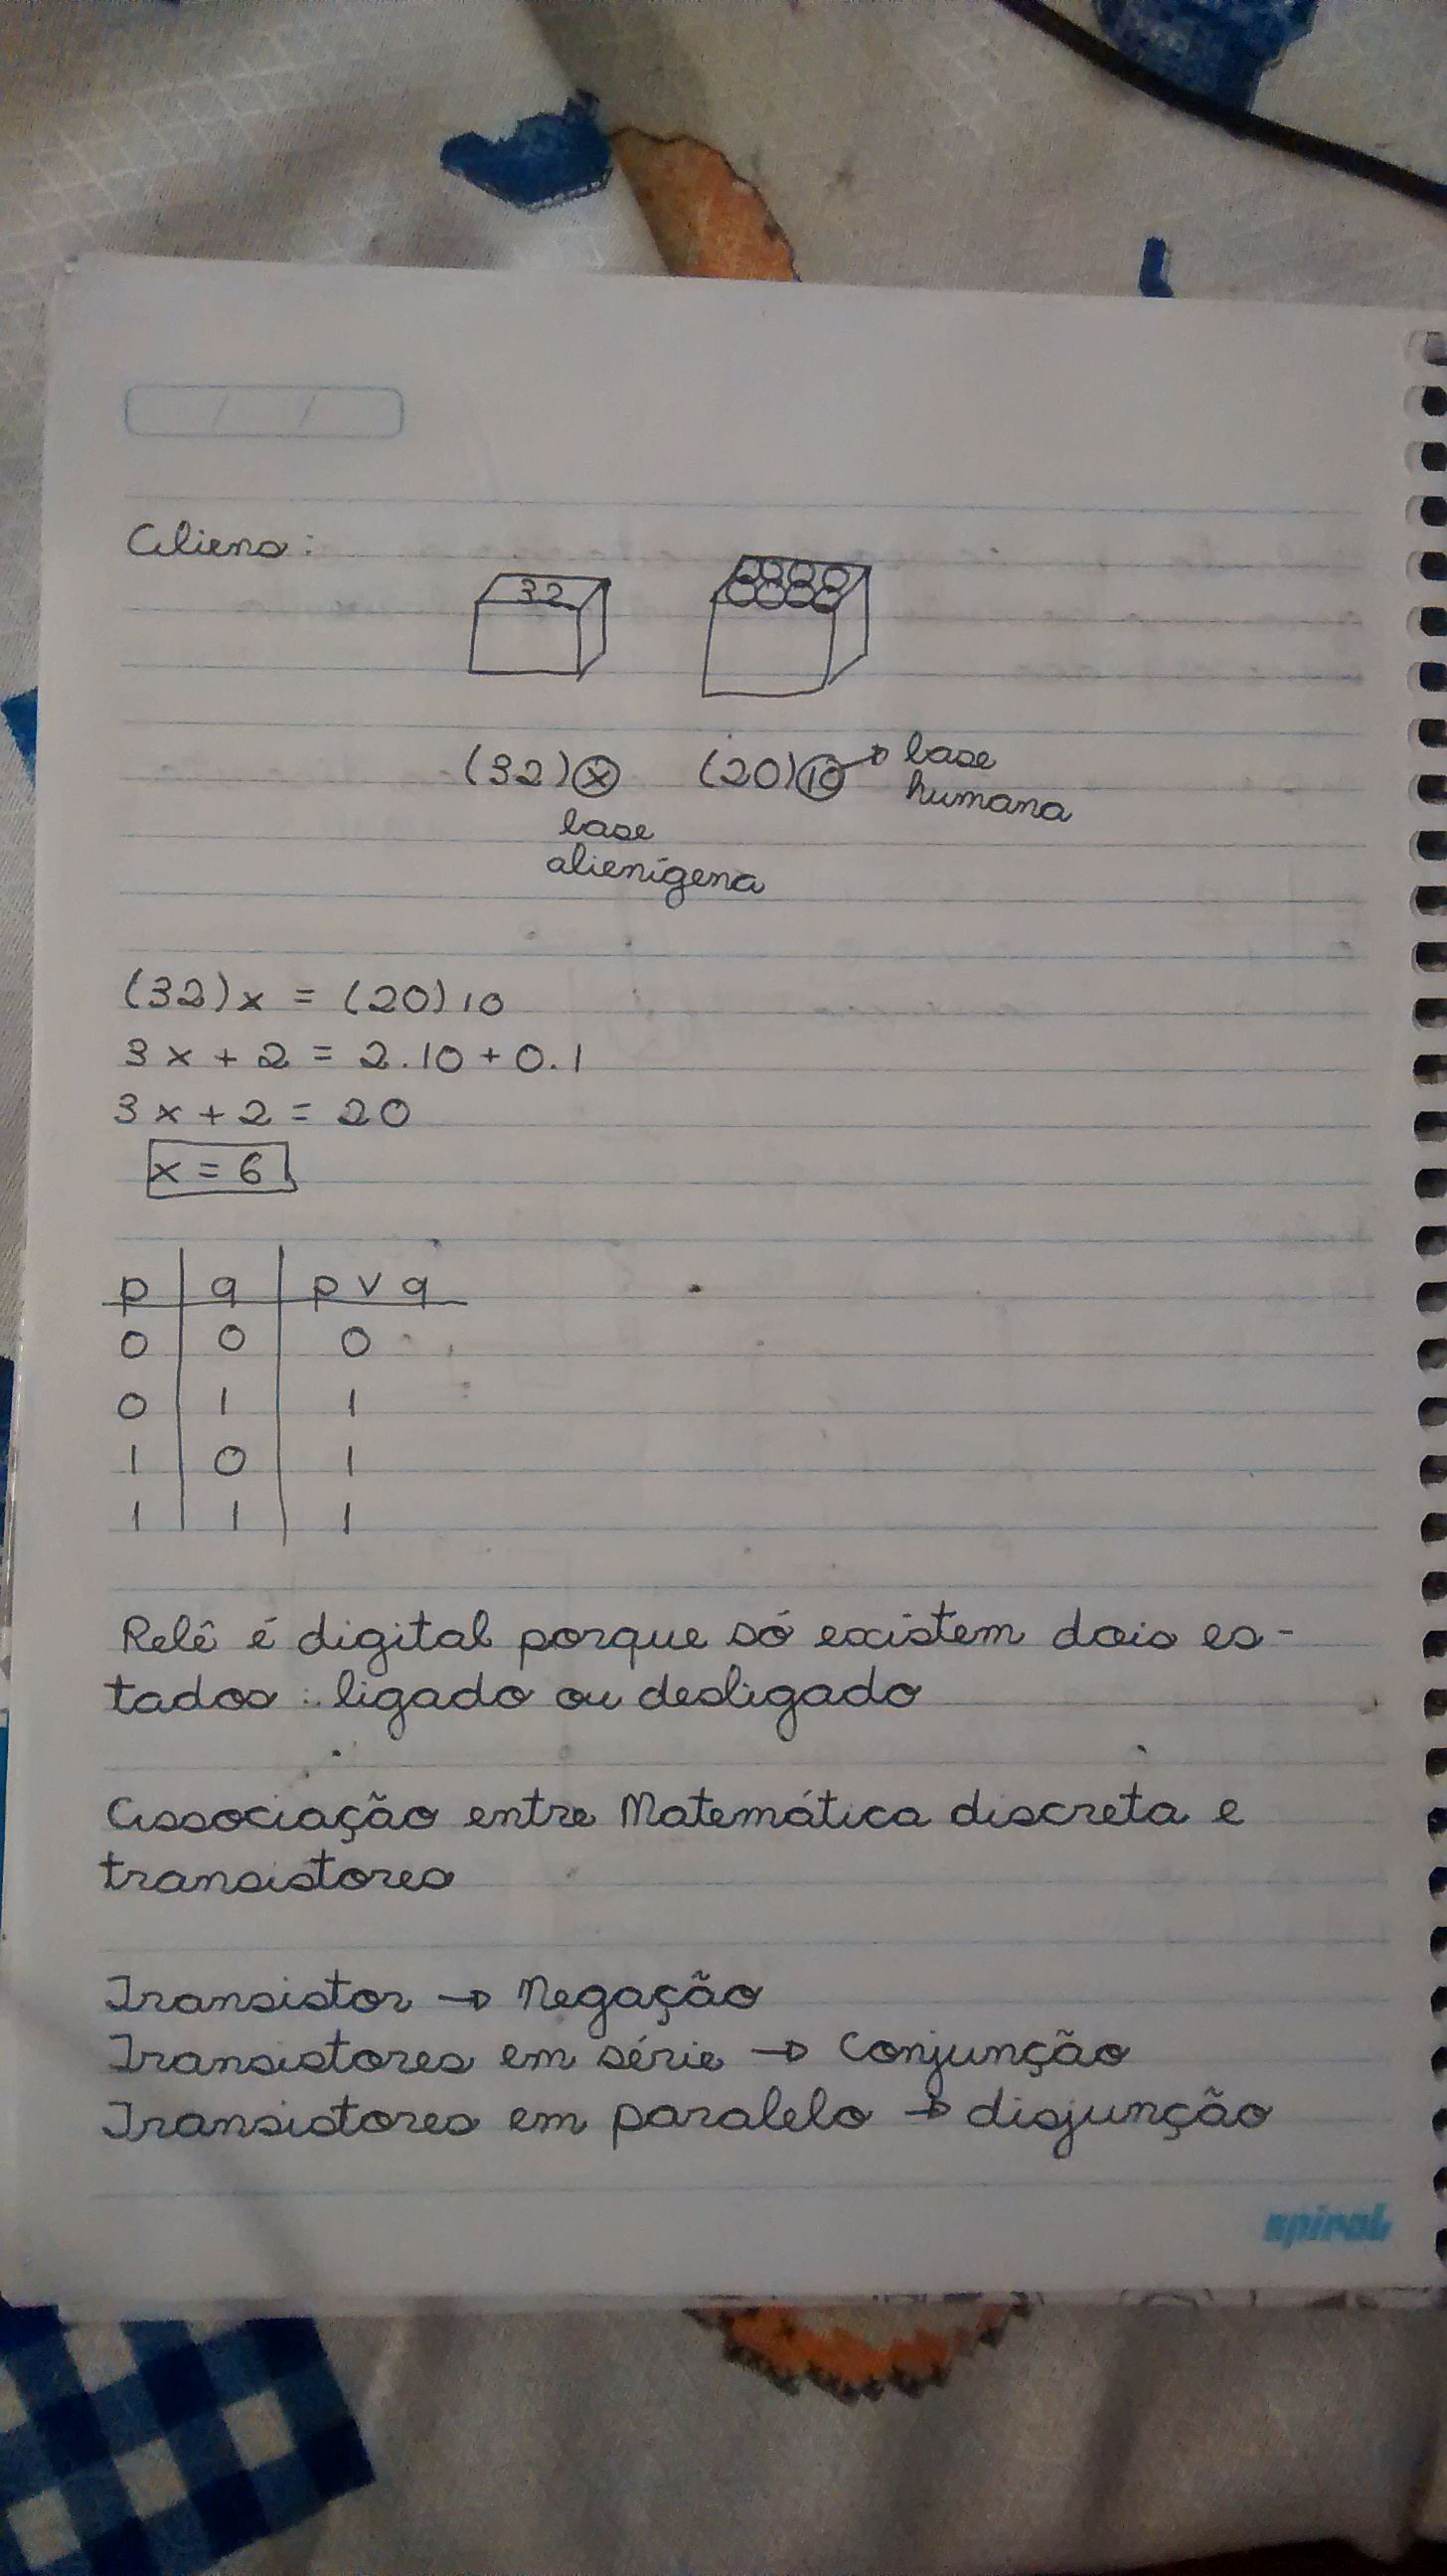 Aliens:
32
(32)x (20)10 → base
humana
base
alienígena
(32)x = (20)10
3x + 2 = 2.10 + 0.1
3x + 2 = 20
x = 6
p | q | p v q
0 | 0 | 0
0 | 1 | 1
1 | 0 | 1
1 | 1 | 1
Relê é digital porque só existem dois es-
tados: ligado ou desligado
Associação entre Matemática discreta e
transistores
Transistor → Negação
Transistores em série → Conjunção
Transistores em paralelo → disjunção
spiral